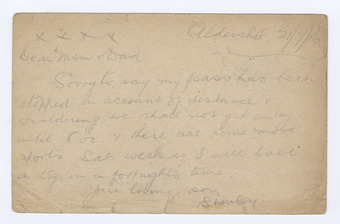 x x x x Aldershot 21/7/16
Dear Mum & Dad
Sorry to say my pass has been
stopped on account of distance &
considering we shall not get away
until 6 oc. & there are some more
sports Sat. week so I will have
a try in a fortnight's time.
Your loving son
Stanley